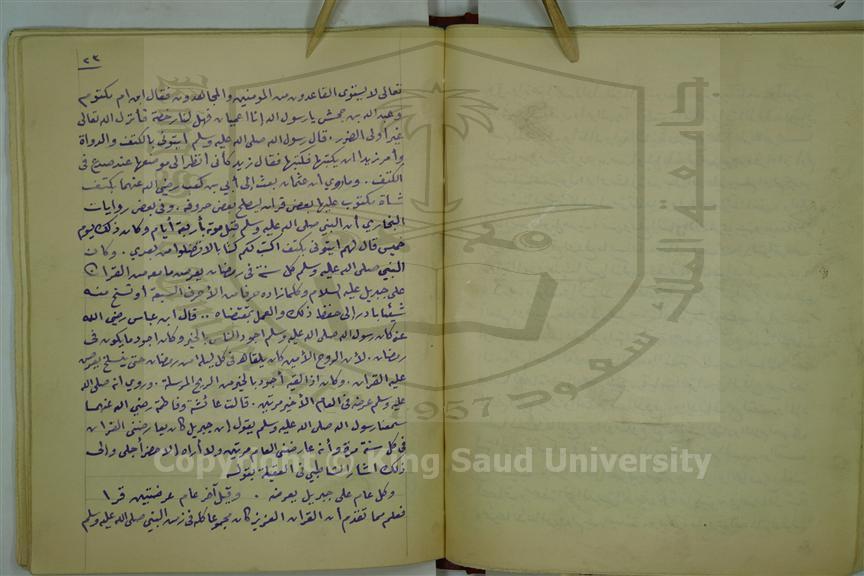 ٢٣
تعالى لا يستوى القاعدون من المؤمنين والمجاهدون فقال ابن ام مكتوم
وعبد الله بن جحش يا رسول الله إنا اعميان فهل لنا رخصة فأنزل الله تعالى
غير أولى الضرر . قال رسول الله صلى الله عليه وسلم ايتونى بالكتف والدواة
وأمر زيدا ان يكتبها فكتبها فقال زيد كأنى أنظر الى موضعها عند صدع فى
الكتف . وماروى أن عثمان بعث الى أبى بن كعب رضى الله عنهما بكتف
شاة مكتوب عليها بعض قرآن ليصلح بعض حروفه . وفى بعض روايات
البخارى أن النبي صلى الله عليه وسلم قبل موته بأربعة أيام وكان ذلك يوم
خميس قال لهم ايتونى بكتف اكتب لكم كتابا لا تضلوا من بعدى . وكان
النبي صلى الله عليه وسلم كل سنة فى رمضان يعرض ما معه من القرآن
على جبريل عليه السلام وكلما زاده حرفا من الأحرف السبعة أو نسخ منه
شيئا بادر الى حفظ ذلك والعمل بمقتضاه .. قال ابن عباس رضى الله
عنه كان رسول الله صلى الله عليه وسلم اجود الناس بالخير وكان اجود ما يكون فى
رمضان . لأن الروح الأمين كان يلقاه فى كل ليلة من رمضان حتى ينسلخ يعرض
عليه القرآن . وكان اذا لقيه أجود بالخير من الريح المرسلة . وروى انه صلى الله
عليه وسلم عرضه فى العام الأخير مرتين . قالت عائشة وفاطمة رضى الله عنهما
سمعنا رسول الله صلى الله عليه وسلم يقول إن جبريل كان يعارضنى القرآن
فى كل سنة مرة وأنه عارضنى العام مرتين ولا أراه الا حضر أجلى والى
ذلك أشار الشاطبى فى العقيلة بقوله
وكل عام على جبريل يعرضه . وقيل آخر عام عرضتين قرا
فعلم مما تقدم أن القرآن العزيز كان مجموعا كله فى زمن النبي صلى الله عليه وسلم
جامعة الملك سعود
King Saud University
1957
Copyright © King Saud University